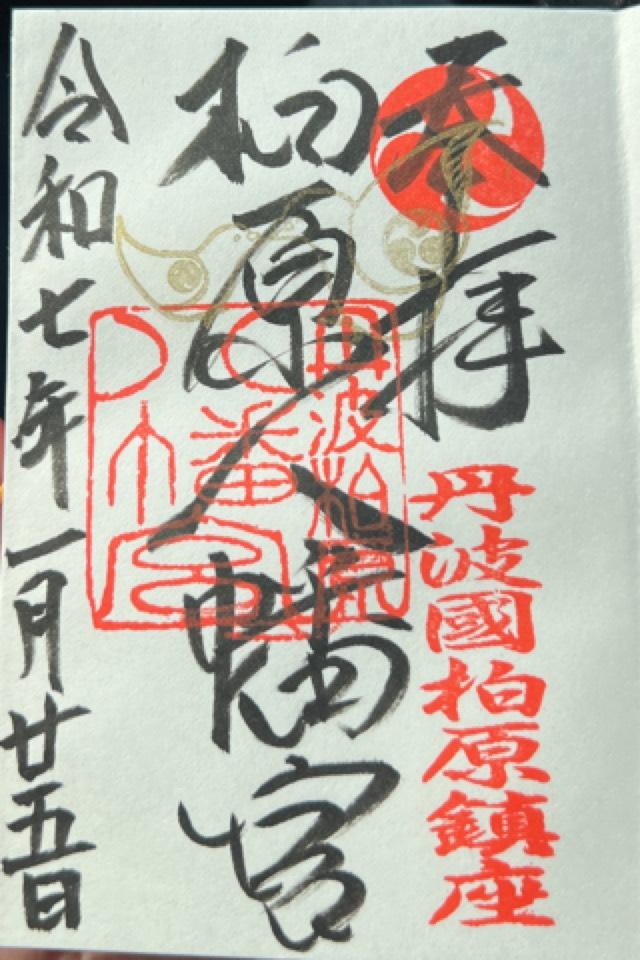 奉拝
丹波國柏原鎮座
柏原八幡宮
丹波柏原
八幡宮
令和七年一月廿五日